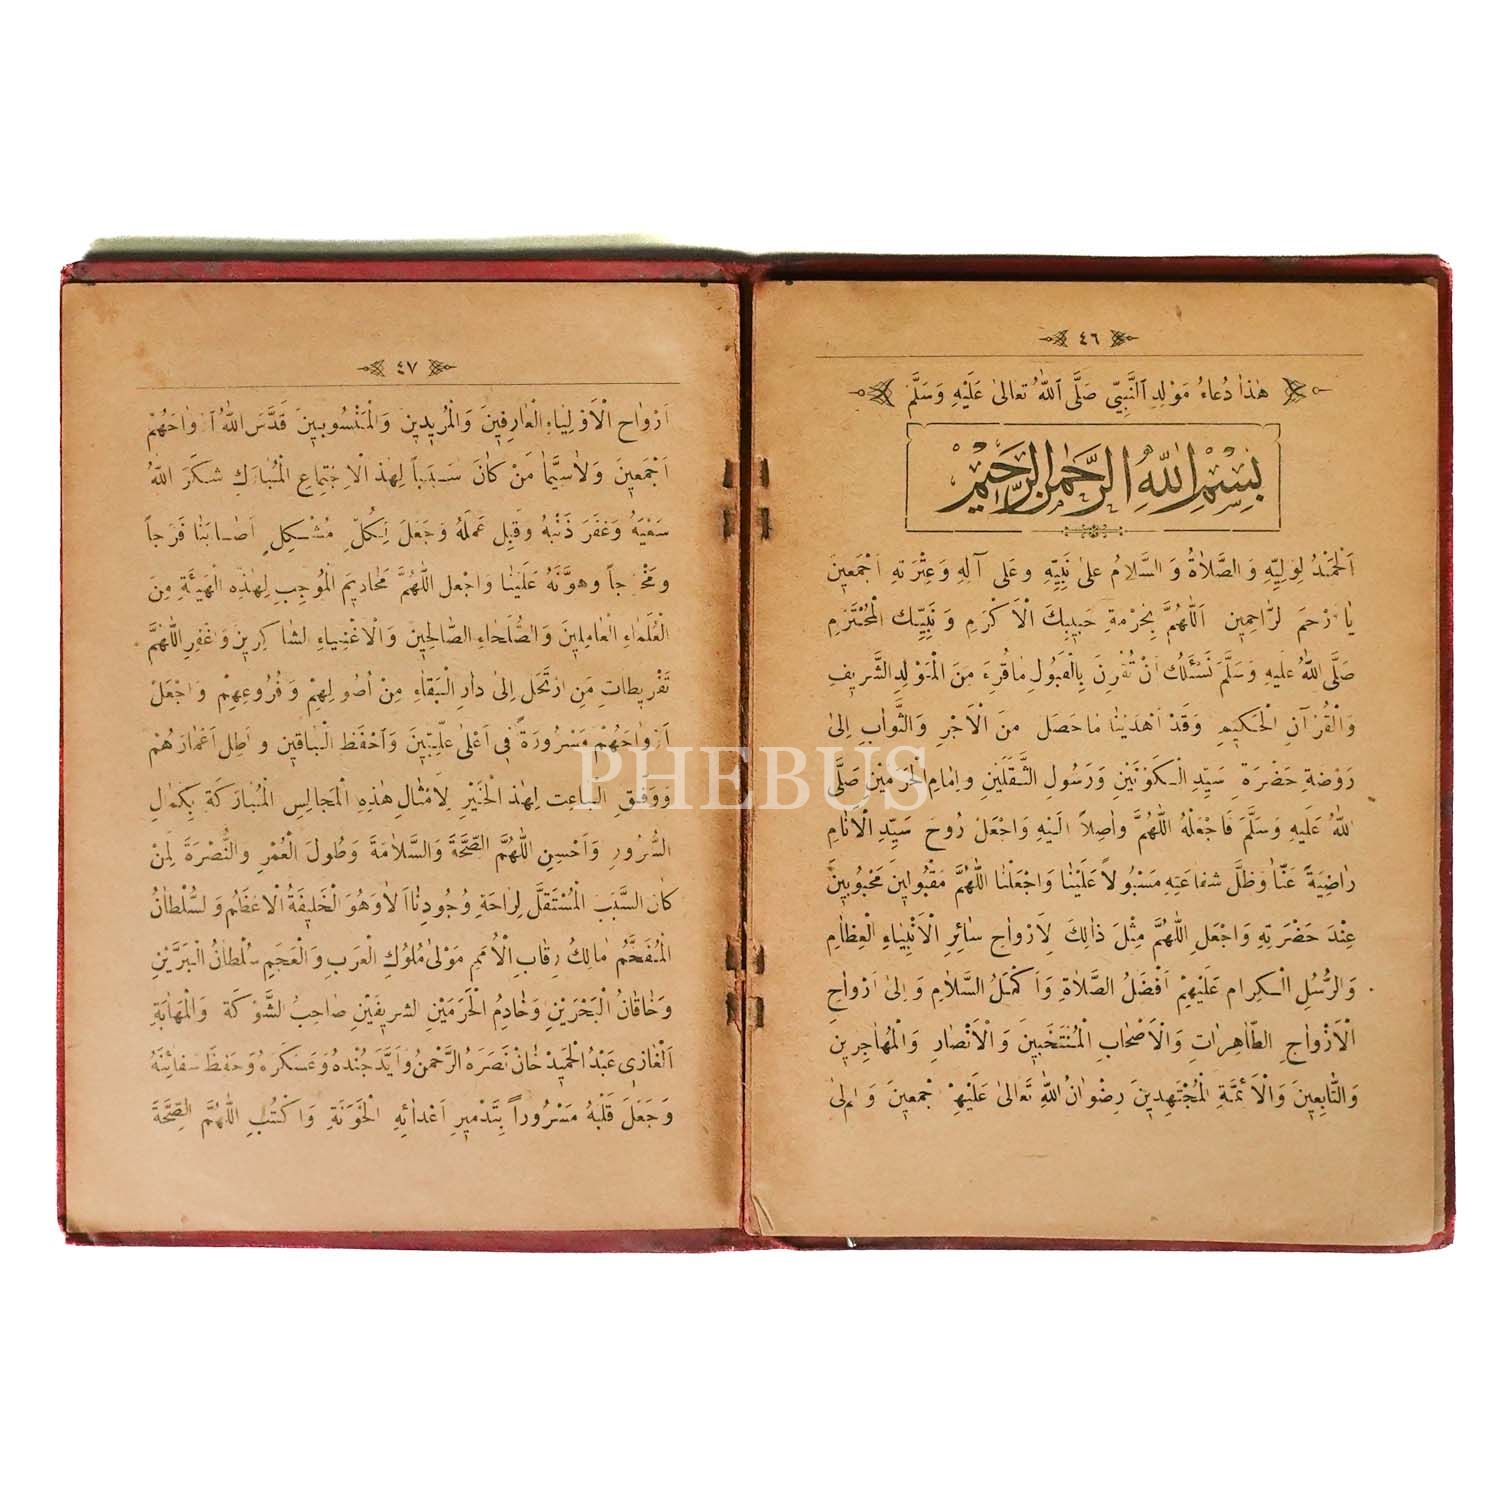 ٤٦
هٰذَا دُعَاءُ مَوْلِدِ اَلنَّبِيِّ صَلَّى اللّٰهُ تَعَالٰى عَلَيْهِ وَسَلَّمَ
بِسْمِ اللّٰهِ الرَّحْمٰنِ الرَّحِيْمِ
اَلْحَمْدُ لِوَلِيِّهِ وَالصَّلَاةُ وَالسَّلَامُ عَلٰى نَبِيِّهِ وَعَلٰى آلِهِ وَعِتْرَتِهِ اَجْمَعِينَ
يَا رْحَمَ لرَّاحِمِينَ اَللّٰهُمَّ بِحُرْمَةِ حَبِيبِكَ الْاَكْرَمِ وَنَبِيِّكَ الْمُحْتَرَمِ
صَلَّى اللّٰهُ عَلَيْهِ وَسَلَّمَ نَسْئَلُكَ اَنْ تُقْرِنَ بِالْقَبُولِ مَا قُرِءَ مِنَ الْمَوْلِدِ الشَّرِيفِ
وَالْقُرْآنِ الْحَكِيمِ وَقَدْ اَهْدَيْنَا مَا حَصَلَ مِنَ الْاَجْرِ وَالثَّوَابِ اِلٰى
رَوْضَةِ حَضْرَةِ سَيِّدِ الْكَوْنَيْنِ وَرَسُولِ الثَّقَلَيْنِ وَاِمَامِ الْحَرَمَيْنِ صَلَّى
اللّٰهُ عَلَيْهِ وَسَلَّمَ فَاجْعَلْهُ اللّٰهُمَّ وَاصِلاً اِلَيْهِ وَاجْعَلْ رُوحَ سَيِّدِ الْاَنَامِ
رَاضِيَةً عَنَّا وَظَلَّ شَفَاعَتِهِ مَسْبُولاً عَلَيْنَا وَاجْعَلْنَا اللّٰهُمَّ مَقْبُولِينَ مَحْبُوبِينَ
عِنْدَ حَضْرَتِهِ وَاجْعَلِ اللّٰهُمَّ مِثْلَ ذَالِكَ لِاَرْوَاحِ سَائِرِ الْاَنْبِيَاءِ الْعِظَامِ
وَالرُّسُلِ الْكِرَامِ عَلَيْهِمْ اَفْضَلُ الصَّلَاةِ وَاَكْمَلُ السَّلَامِ وَاِلٰى اَرْوَاحِ
الْاَزْوَاجِ الطَّاهِرَاتِ وَالْاَصْحَابِ الْمُنْتَخَبِينَ وَالْاَنْصَارِ وَالْمُهَاجِرِينَ
وَالتَّابِعِينَ وَالْاَئِمَّةِ الْمُجْتَهِدِينَ رِضْوَانُ اللّٰهِ تَعَالٰى عَلَيْهِمْ جْمَعِينَ وَاِلٰى
٤٧
اَرْوَاحِ الْاَوْلِيَاءِ الْعَارِفِينَ وَالْمُرِيدِينَ وَالْمَنْسُوبِينَ قَدَّسَ اللّٰهُ اَرْوَاحَهُمْ
اَجْمَعِينَ وَلَاسِيَّمَا مَنْ كَانَ سَبَباً لِهٰذَ الْاِجْتِمَاعِ الْمُبَارَكِ شَكَرَ اللّٰهُ
سَعْيَهُ وَغَفَرَ ذَنْبَهُ وَقَبِلَ عَمَلَهُ وَجَعَلَ لِكُلِّ مُشْكِلٍ اَصَابَنَا فَرَجاً
وَمَخْرَجاً وَهَوَّنَهُ عَلَيْنَا وَاجْعَلِ اللّٰهُمَّ مَحَادِيمَ الْمُوجِبِ لِهٰذِهِ الْهَيْئَةِ مِنَ
الْعُلَمَاءِ الْعَامِلِينَ وَالصُّلَحَاءِ الصَّالِحِينَ وَالْاَغْنِيَاءِ لشَّاكِرِينَ وَغْفِرِ اللّٰهُمَّ
تَفْرِيطَاتِ مَنِ ارْتَحَلَ اِلٰى دَارِ الْبَقَاءِ مِنْ اُصُولِهِمْ وَفُرُوعِهِمْ وَاجْعَلْ
اَرْوَاحَهُمْ مَسْرُورَةً فِي اَعْلٰى عِلِّيِّينَ وَاحْفَظِ الْبَاقِينَ وَاَطِلْ اَعْمَارَهُمْ
وَوَفِّقِ الْبَاعِثَ لِهٰذَ الْخَيْرِ لِاَمْثَالِ هٰذِهِ الْمَجَالِسِ الْمُبَارَكَةِ بِكَمَالِ
السُّرُورِ وَاَحْسِنِ اللّٰهُمَّ الصِّحَّةَ وَالسَّلَامَةَ وَطُولَ الْعُمْرِ وَالنُّصْرَةَ لِمَنْ
كَانَ السَّبَبَ الْمُسْتَقَلَّ لِرَاحَةِ وُجُودِنَا اَلَا وَهُوَ الْخَلِيفَةُ الْاَعْظَمُ وَلسُّلْطَانُ
الْمُفَخَّمُ مَالِكُ رِقَابِ الْاُمَمِ مَوْلٰى مُلُوكِ الْعَرَبِ وَالْعَجَمِ سُلْطَانُ الْبَرَّيْنِ
وَخَاقَانُ الْبَحْرَيْنِ وَخَادِمُ الْحَرَمَيْنِ الشَّرِيفَيْنِ صَاحِبُ الشَّوْكَةِ وَالْمَهَابَةِ
اَلْغَازِي عَبْدُ الْحَمِيدْ خَانْ نَصَرَهُ الرَّحْمٰنُ وَاَيَّدَ جُنْدَهُ وَعَسْكَرَهُ وَحَفِظَ سَفَائِنَهُ
وَجَعَلَ قَلْبَهُ مَسْرُوراً بِتَدْمِيرِ اَعْدَائِهِ الْخَوَنَةِ وَاكْتُبِ اللّٰهُمَّ الصِّحَّةَ
PHEBUS